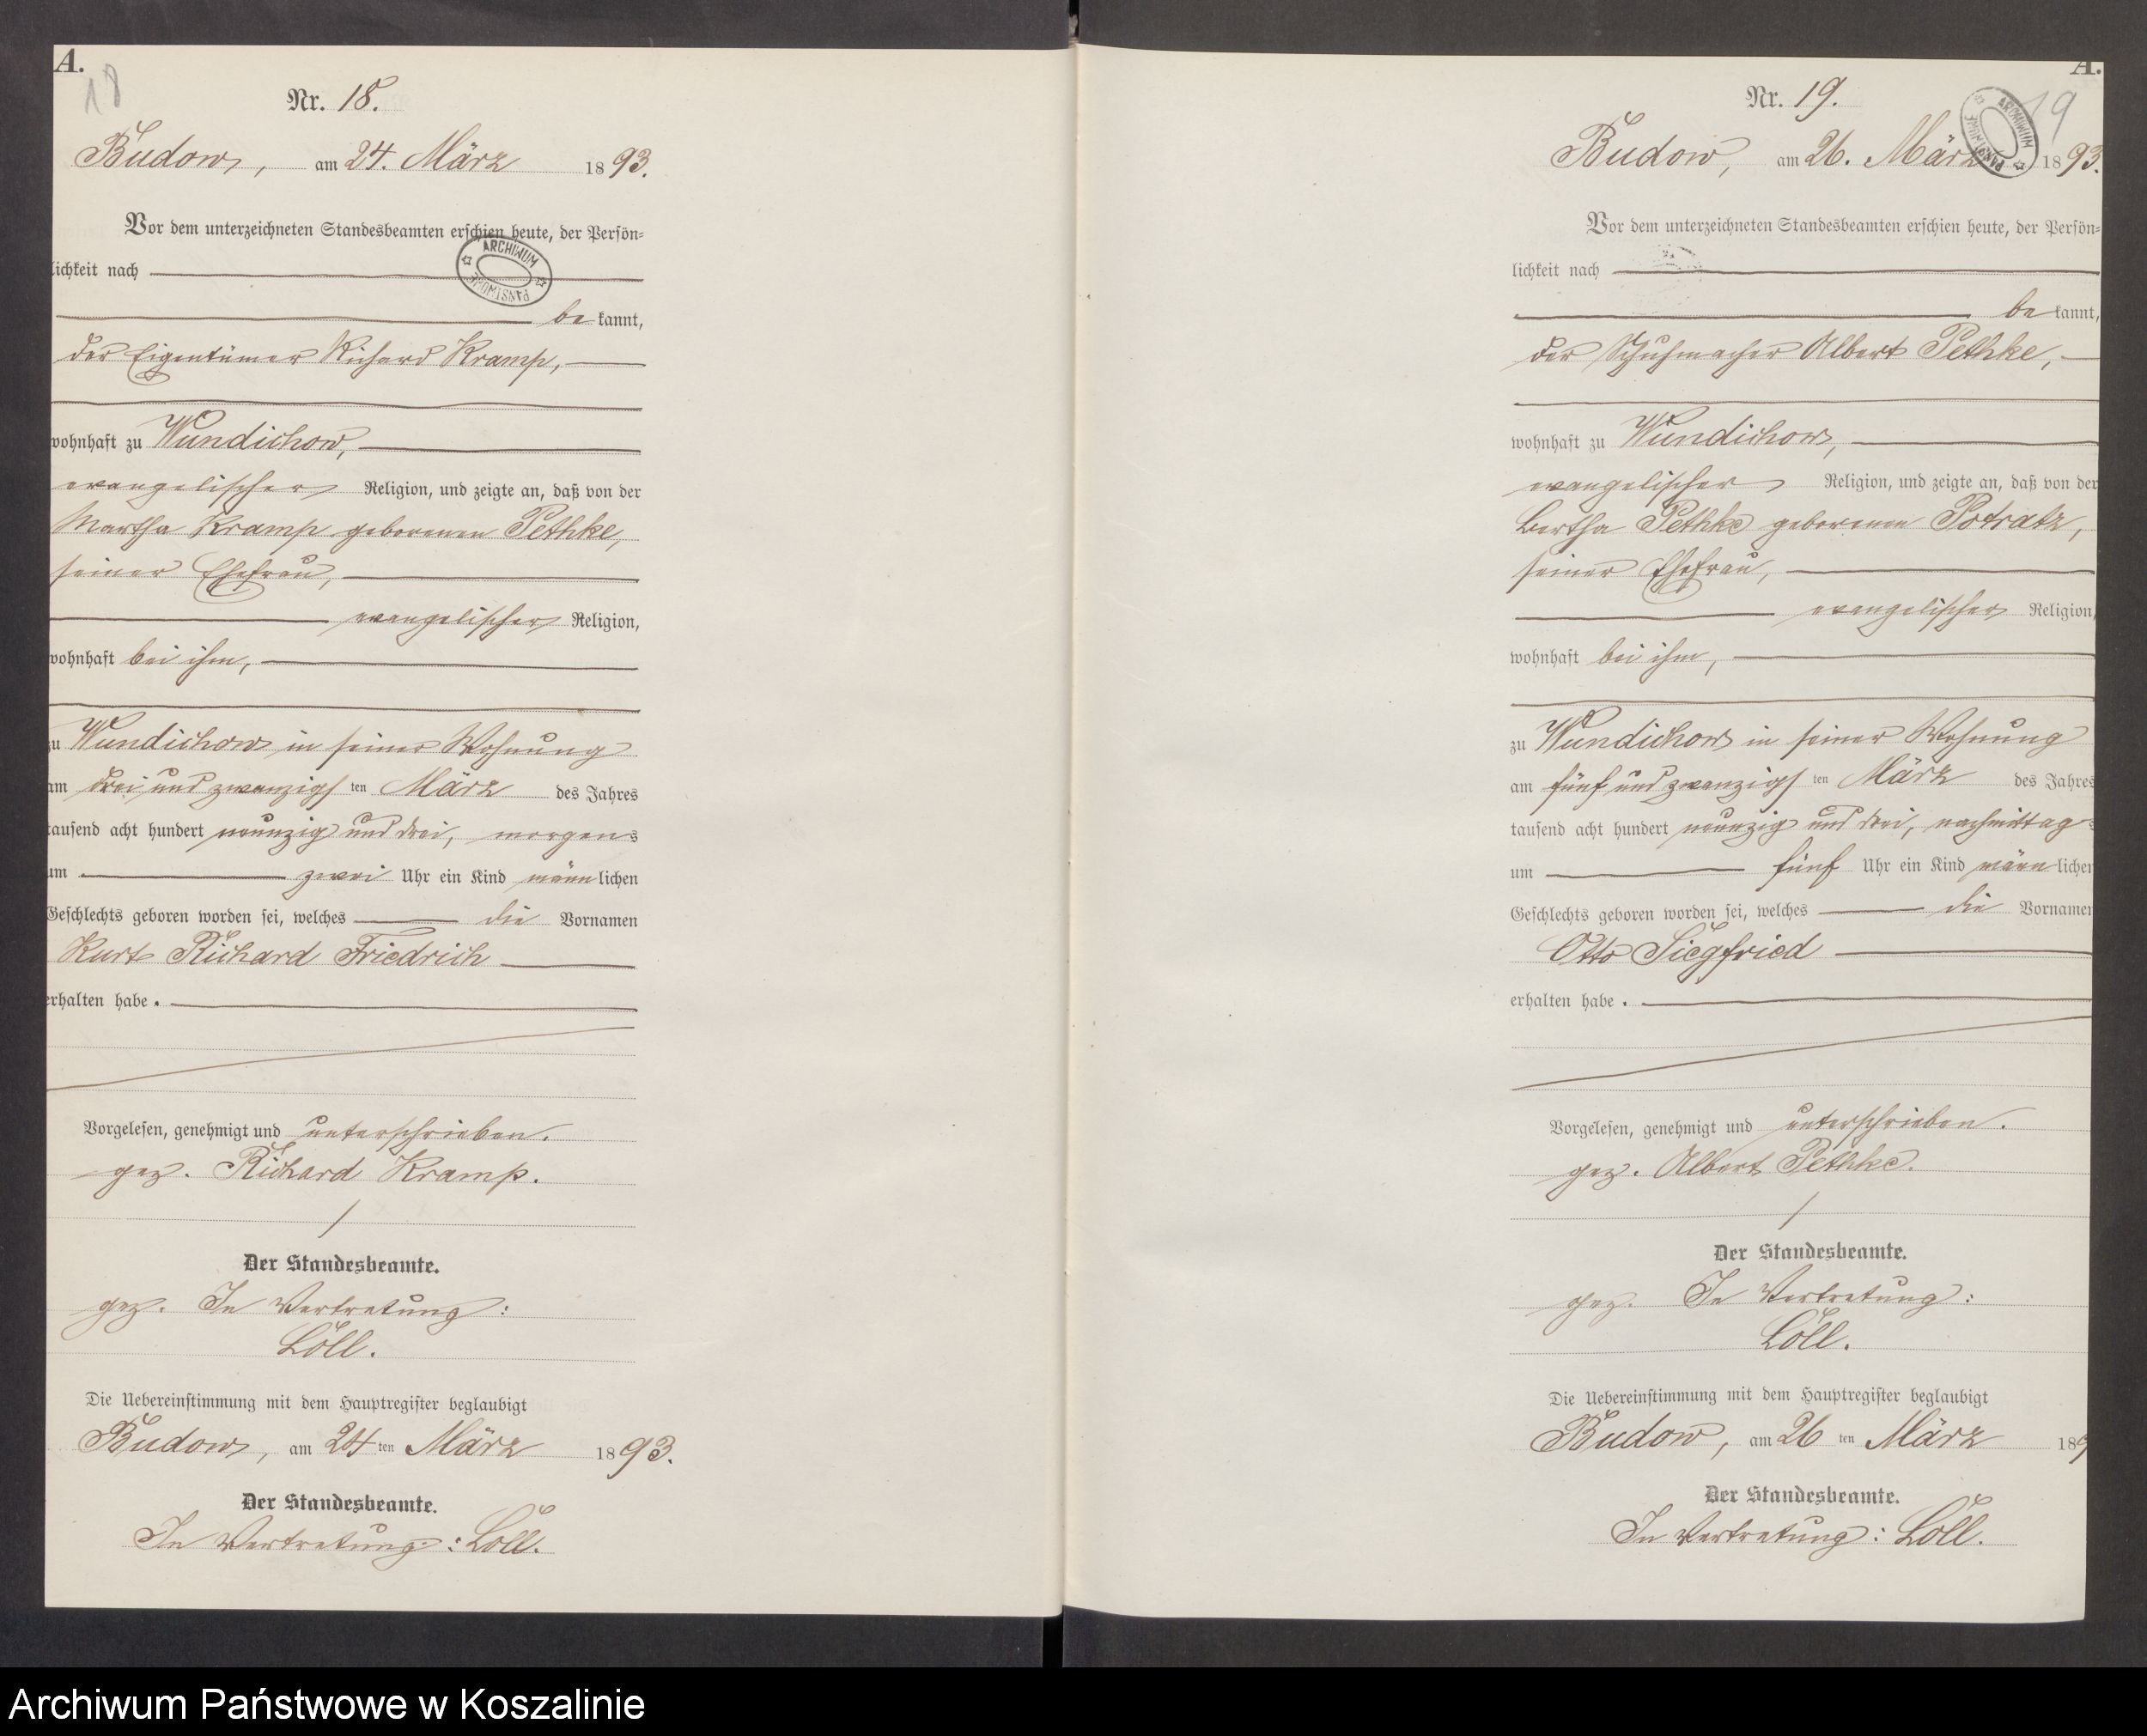 A.
18
Nr. 18.
Budow, am 24. März 1893.
Vor dem unterzeichneten Standesbeamten erschien heute, der Persön-
lichkeit nach
ARCHIWUM PAŃSTWOWE
be kannt,
der Eigentümer Richard Kramp,
wohnhaft zu Wundichow,
evangelischer Religion, und zeigte an, daß von der
Martha Kramp geborenen Pethke,
seiner Ehefrau,
evangelischer Religion,
wohnhaft bei ihm,
zu Wundichow in seiner Wohnung
am drei und zwanzigsten März des Jahres
tausend acht hundert neunzig und drei, morgens
um zwei Uhr ein Kind männlichen
Geschlechts geboren worden sei, welches die Vornamen
Kurt Richard Friedrich
erhalten habe.
Vorgelesen, genehmigt und unterschrieben.
gez. Richard Kramp.
Der Standesbeamte.
gez. In Vertretung:
Löll.
Die Uebereinstimmung mit dem Hauptregister beglaubigt
Budow, am 24ten März 1893.
Der Standesbeamte.
In Vertretung: Löll.
A.
19
Nr. 19.
ARCHIWUM PAŃSTWOWE
Budow, am 26. März 1893.
Vor dem unterzeichneten Standesbeamten erschien heute, der Persön-
lichkeit nach
be kannt,
der Schuhmacher Albert Pethke,
wohnhaft zu Wundichow,
evangelischer Religion, und zeigte an, daß von der
Bertha Pethke geborenen Potratz,
seiner Ehefrau,
evangelischer Religion,
wohnhaft bei ihm,
zu Wundichow in seiner Wohnung
am fünf und zwanzigsten März des Jahres
tausend acht hundert neunzig und drei, nachmittags
um fünf Uhr ein Kind männlichen
Geschlechts geboren worden sei, welches die Vornamen
Otto Siegfried
erhalten habe.
Vorgelesen, genehmigt und unterschrieben.
gez. Albert Pethke.
Der Standesbeamte.
gez. In Vertretung:
Löll.
Die Uebereinstimmung mit dem Hauptregister beglaubigt
Budow, am 26 ten März 189
Der Standesbeamte.
In Vertretung: Löll.
Archiwum Państwowe w Koszalinie